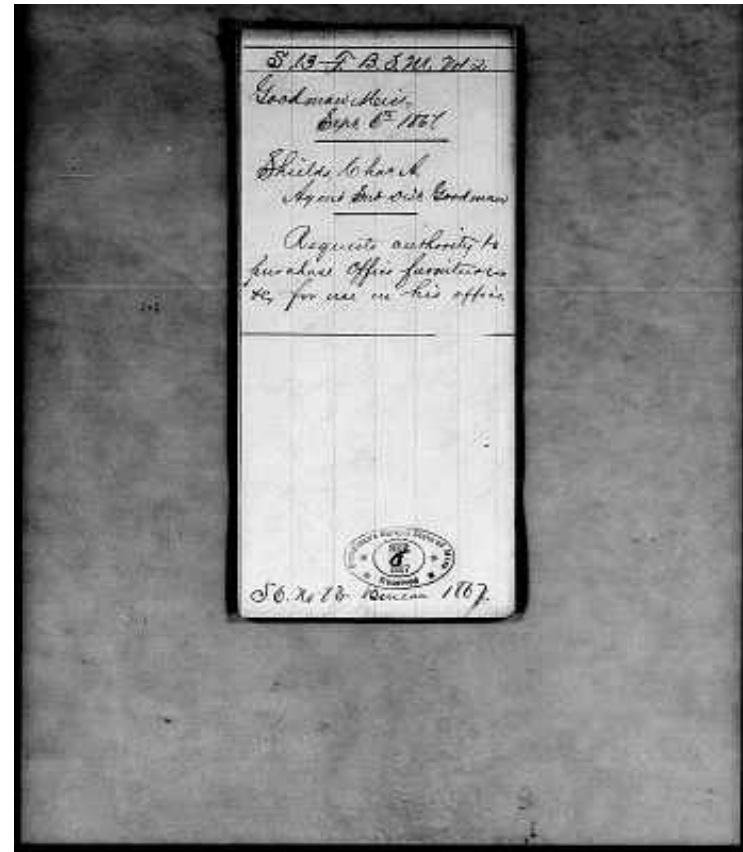 S. 13 - F. B. S. M. Vol 2
Goodman Miss,
Sept 6th 1867
Shields Chas A.
Agent Sub Dist Goodman
Requests authority to
purchase Office furniture
&c, for use in his office
Received
1867.